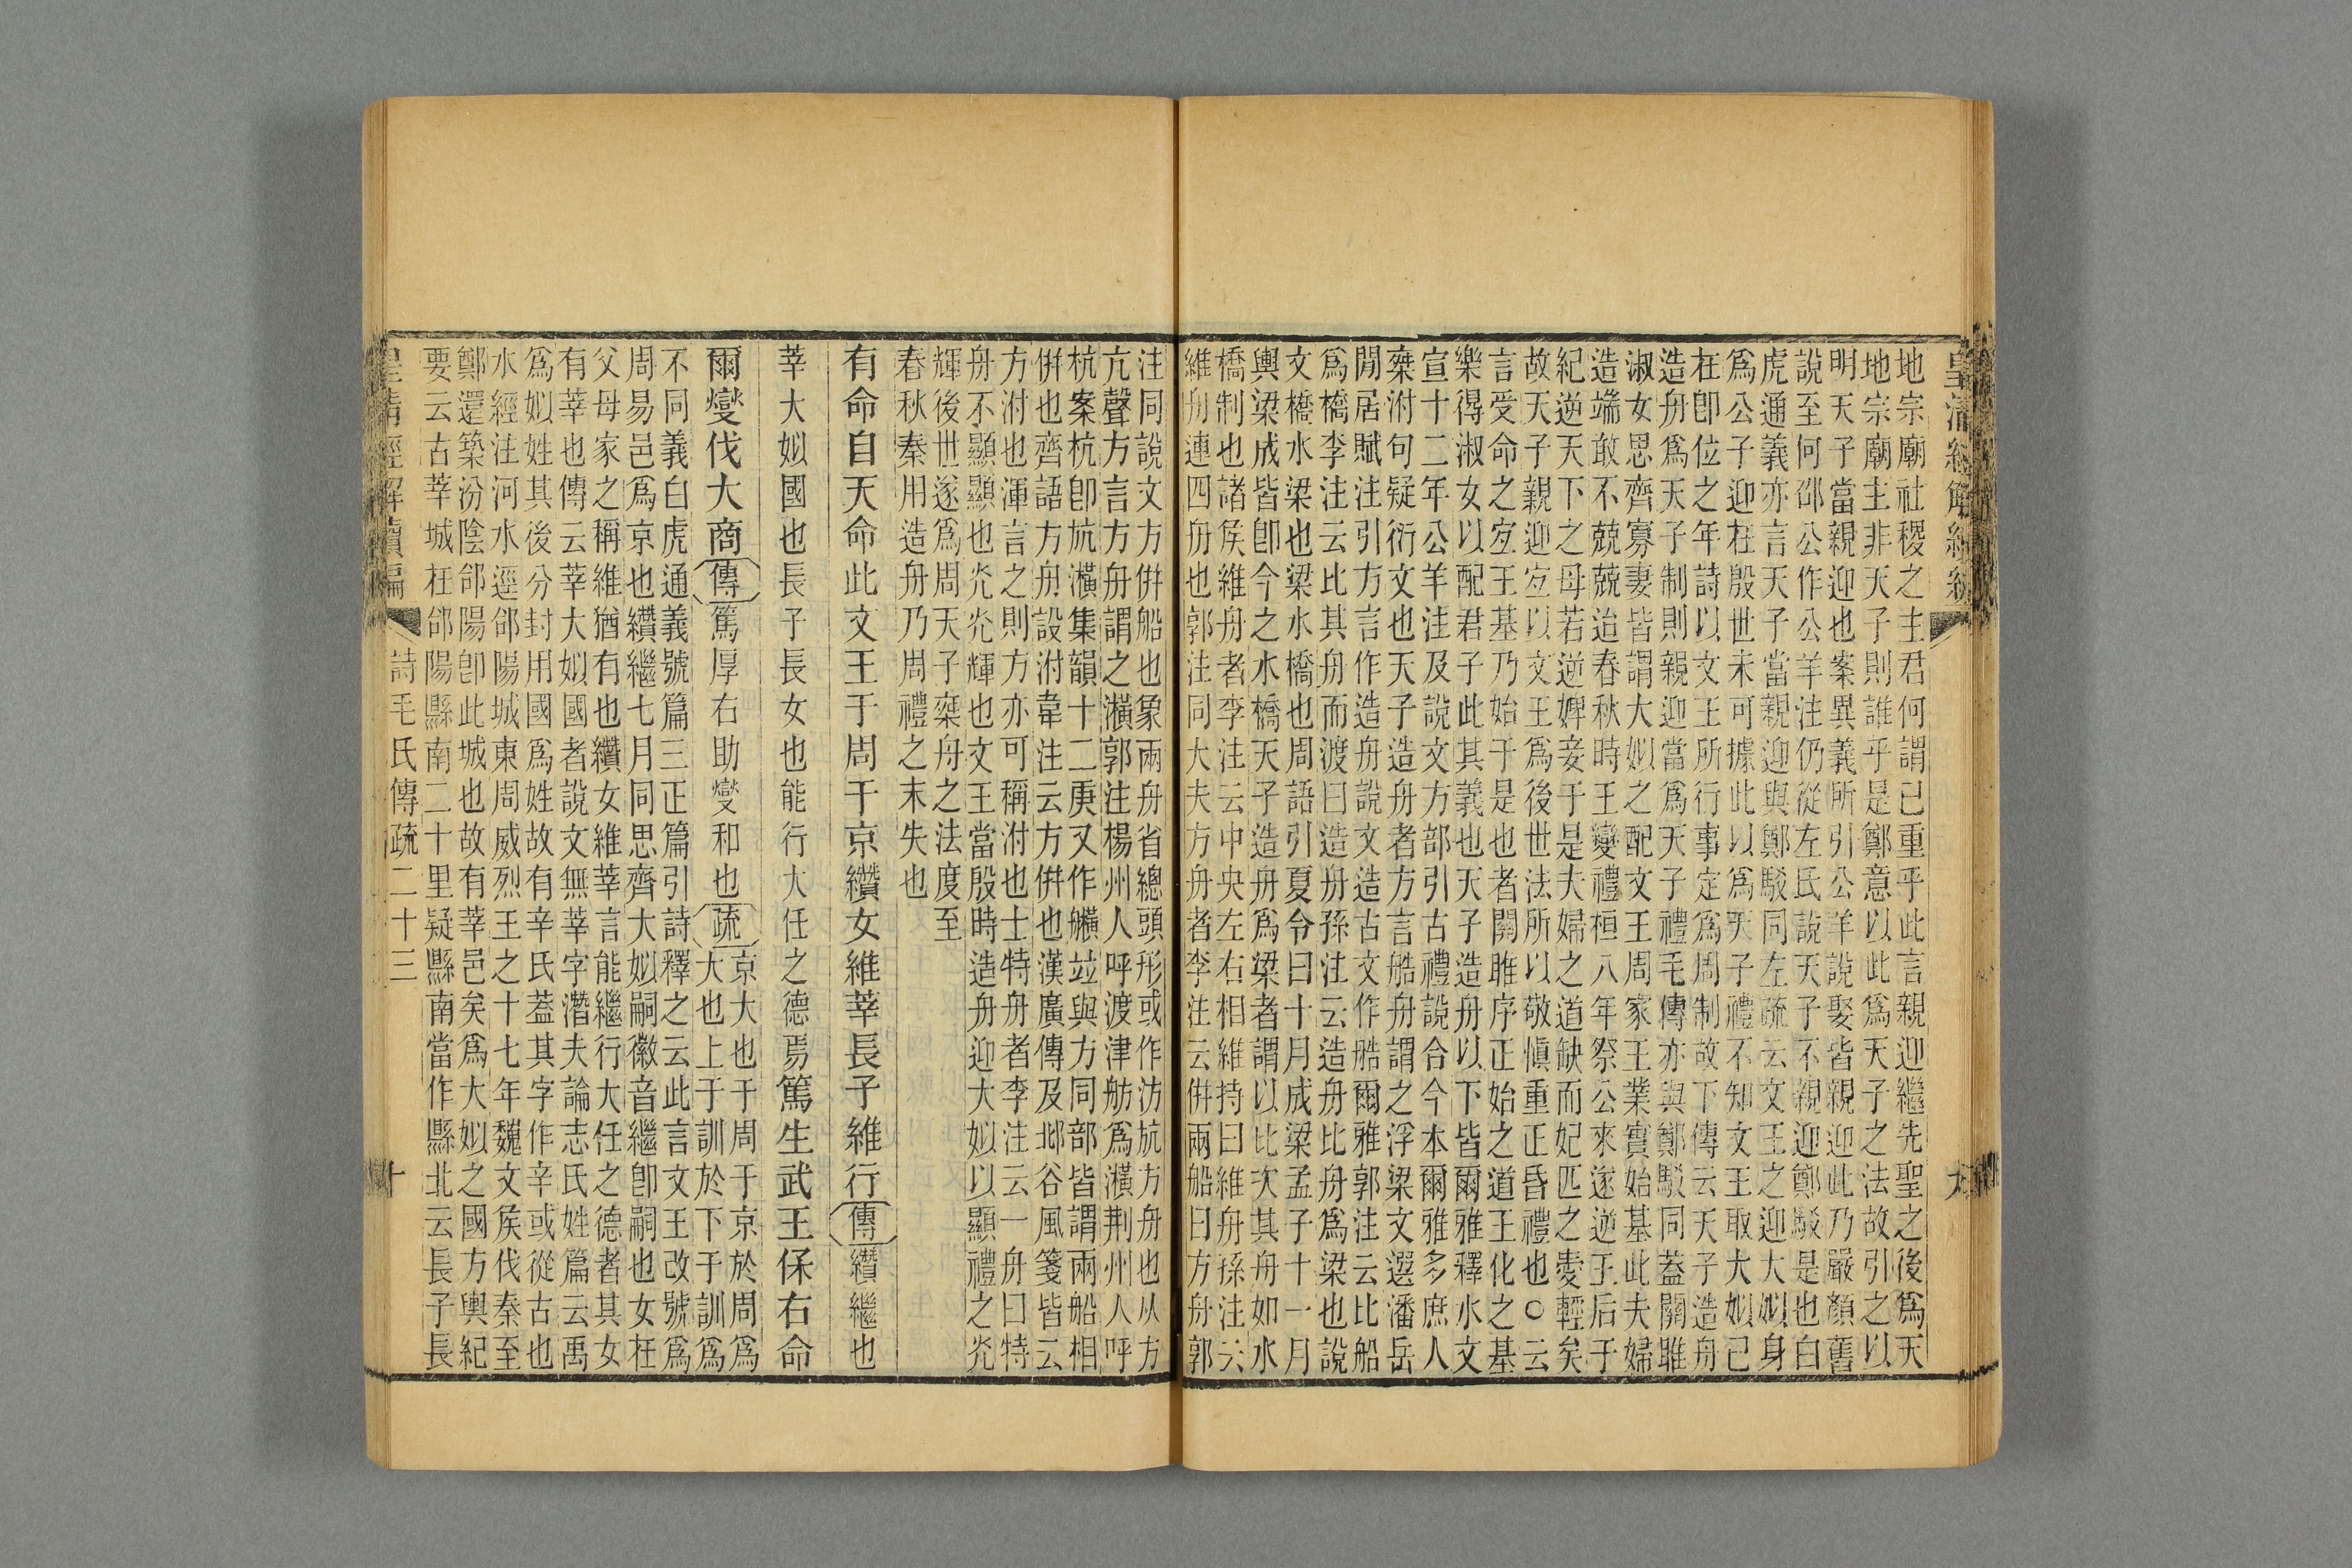 皇清經解續編
九
地宗廟社稷之主君何謂已重乎此言親迎繼先聖之後爲天
地宗廟主非天子則誰乎是鄭意以此爲天子之法故引之以
明天子當親迎也案異義所引公羊說娶皆親迎此乃嚴顏舊
說至何邵公作公羊注仍從左氏說天子不親迎鄭駁是也白
虎通義亦言天子當親迎與鄭駁同左疏云文王之迎大姒身
爲公子迎在殷世未可據此以爲天子禮不知文王取大姒已
在卽位之年詩以文王所行事定爲周制故下傳云天子造舟
造舟爲天子制則親迎當爲天子禮毛傳亦與鄭駁同蓋關雎
淑女思齊寡妻皆謂大姒之配文王周家王業實始基此夫婦
造端敢不兢兢迨春秋時王變禮桓八年祭公來遂逆王后于
紀逆天下之母若逆婢妾于是夫婦之道缺而妃匹之愛輕矣
故天子親迎宐以文王爲後世法所以敬愼重正昏禮也○云
言受命之宐王基乃始于是也者關雎序正始之道王化之基
樂得淑女以配君子此其義也天子造舟以下皆爾雅釋水文
宣十二年公羊注及說文方部引古禮說合今本爾雅多庶人
桒泭句疑衍文也天子造舟者方言艁舟謂之浮梁文選潘岳
閒居賦注引方言作造舟說文造古文作艁爾雅郭注云比船
爲橋李注云比其舟而渡曰造舟孫注云造舟比舟爲梁也說
文橋水梁也梁水橋也周語引夏令曰十月成梁孟子十一月
輿梁成皆卽今之水橋天子造舟爲梁者謂以比次其舟如水
橋制也諸侯維舟者李注云中央左右相維持曰維舟孫注云
維舟連四舟也郭注同大夫方舟者李注云併兩船曰方舟郭
注同說文方併船也象兩舟省總頭形或作汸斻方舟也从方
亢聲方言方舟謂之㶇郭注楊州人呼渡津舫爲㶇荆州人呼
杭案杭卽斻㶇集韻十二庚又作䑤竝與方同部皆謂兩船相
併也齊語方舟設泭韋注云方併也漢廣傳及邶谷風箋皆云
方泭也渾言之則方亦可稱泭也士特舟者李注云一舟曰特
舟不顯顯也光光輝也文王當殷時造舟迎大姒以顯禮之光
輝後世遂爲周天子桒舟之法度至
春秋秦用造舟乃周禮之末失也
有命自天命此文王于周于京纘女維莘長子維行傳纘繼也
莘大姒國也長子長女也能行大任之德焉篤生武王保右命
爾燮伐大商傳篤厚右助燮和也疏京大也于周于京於周爲
大也上于訓於下于訓爲
不同義白虎通義號篇三正篇引詩釋之云此言文王改號爲
周易邑爲京也纘繼七月同思齊大姒嗣徽音繼卽嗣也女在
父母家之稱維猶有也纘女維莘言能繼行大任之德者其女
有莘也傳云莘大姒國者說文無莘字潛夫論志氏姓篇云禹
爲姒姓其後分封用國爲姓故有辛氏蓋其字作辛或從古也
水經注河水逕郃陽城東周威烈王之十七年魏文侯伐秦至
鄭還築汾陰郃陽卽此城也故有莘邑矣爲大姒之國方輿紀
要云古莘城在郃陽縣南二十里疑縣南當作縣北云長子長
皇清經解續編
詩毛氏傳疏二十三
十